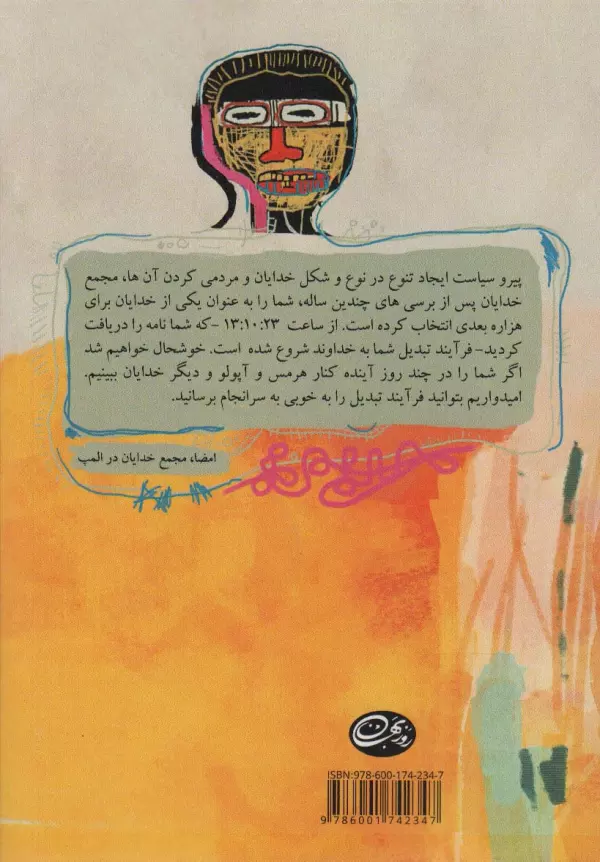 پیرو سیاست ایجاد تنوع در نوع و شکل خدایان و مردمی کردن آن ها، مجمع
خدایان پس از برسی های چندین ساله، شما را به عنوان یکی از خدایان برای
هزاره بعدی انتخاب کرده است. از ساعت ۱۳:۱۰:۲۳ -که شما نامه را دریافت
کردید- فرآیند تبدیل شما به خداوند شروع شده است. خوشحال خواهیم شد
اگر شما را در چند روز آینده کنار هرمس و آپولو و دیگر خدایان ببینیم.
امیدواریم بتوانید فرآیند تبدیل را به خوبی به سرانجام برسانید.
امضا، مجمع خدایان در المپ
روزبهان
ISBN:978-600-174-234-7
9 786001 742347